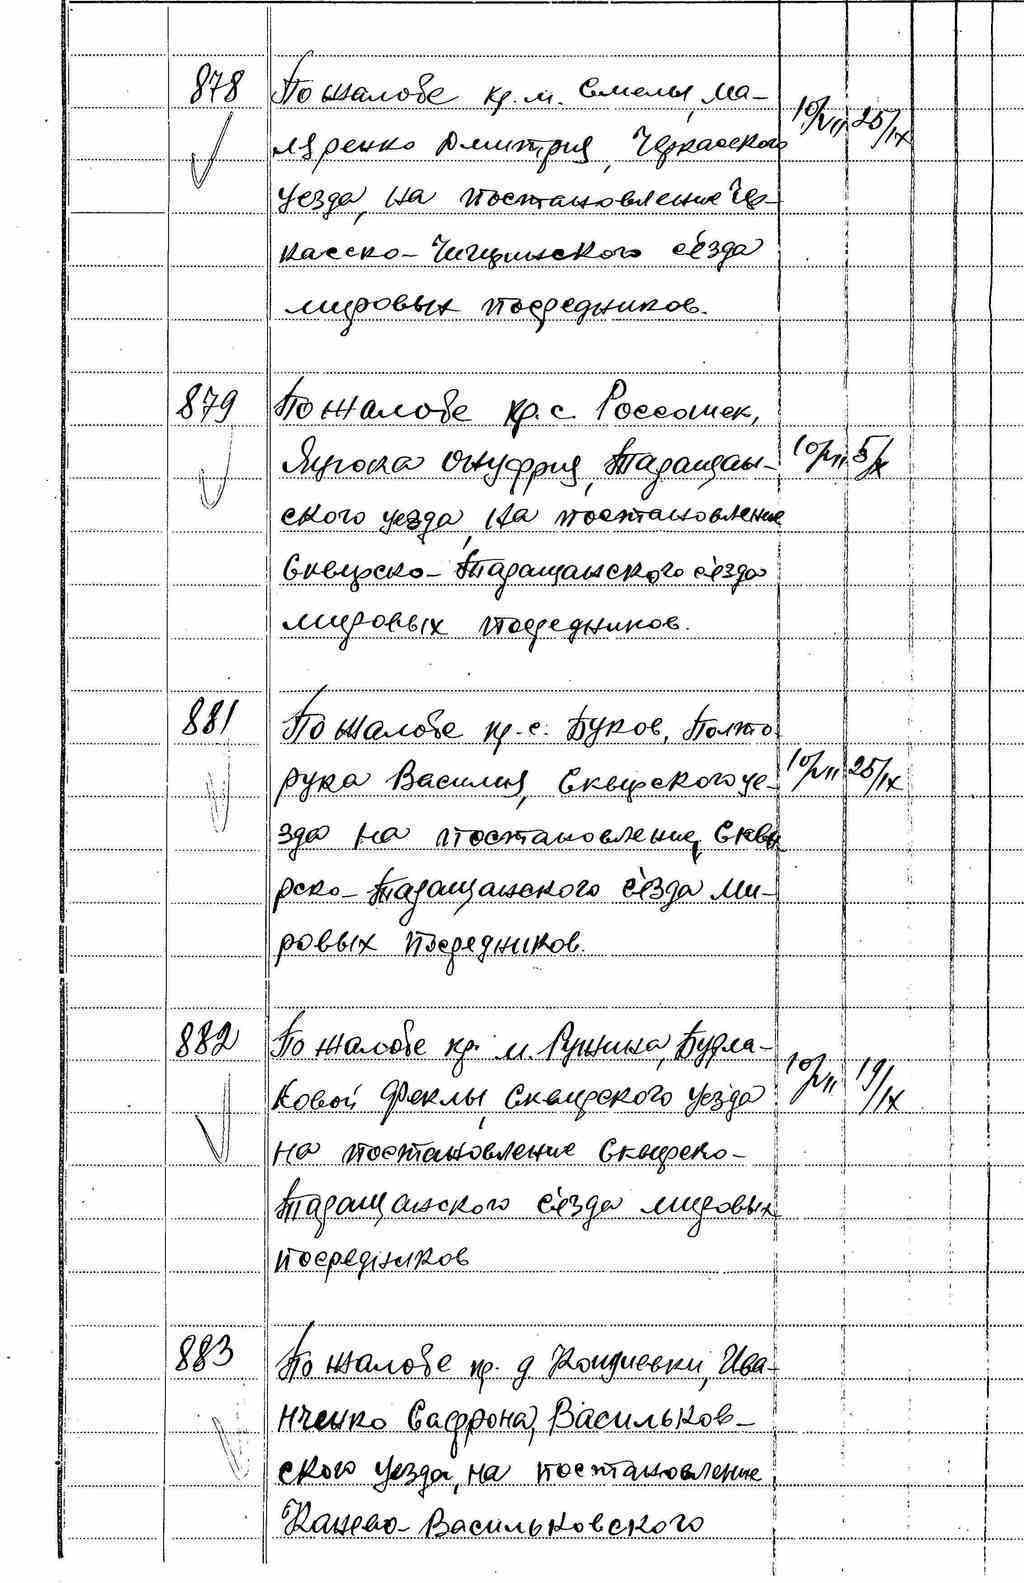 878 По жалобе кр. м. Смелы, Ма-
ляренко Дмитрия, Черкасского 10/VII 25/IX
уезда, на постановление Чер-
касско-Чигиринского съезда
мировых посредников.
879 По жалобе кр. с. Россошек,
Яцюка Онуфрия, Таращан- 10/VII 5/X
ского уезда, на постановление
Сквирско-Таращанского съезда
мировых посредников.
881 По жалобе кр. с. Буков, Полто
рука Василия, Сквирского уе- 10/VII 25/IX
зда на постановление Скви
рско-Таращанского съезда ми-
ровых посредников.
882 По жалобе кр. м. Ружина, Бурла-
ковой Феклы, Сквирского уезда 10/VII 19/IX
на постановление Сквирско-
Таращанского съезда мировых
посредников
883 По жалобе кр. д. Ива-
нченко Сафрона, Васильков-
ского уезда, на постановление
Канево-Васильковского